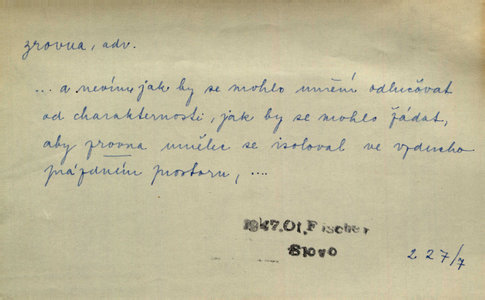 zrovna, adv.
... a nevím jak by se mohlo umění odlučovat
od charakternosti, jak by se mohlo žádat,
aby zrovna umělec se isoloval ve vzducho
prázdném prostoru, ....
1947.Ot.Fischer
Slovo
227/7